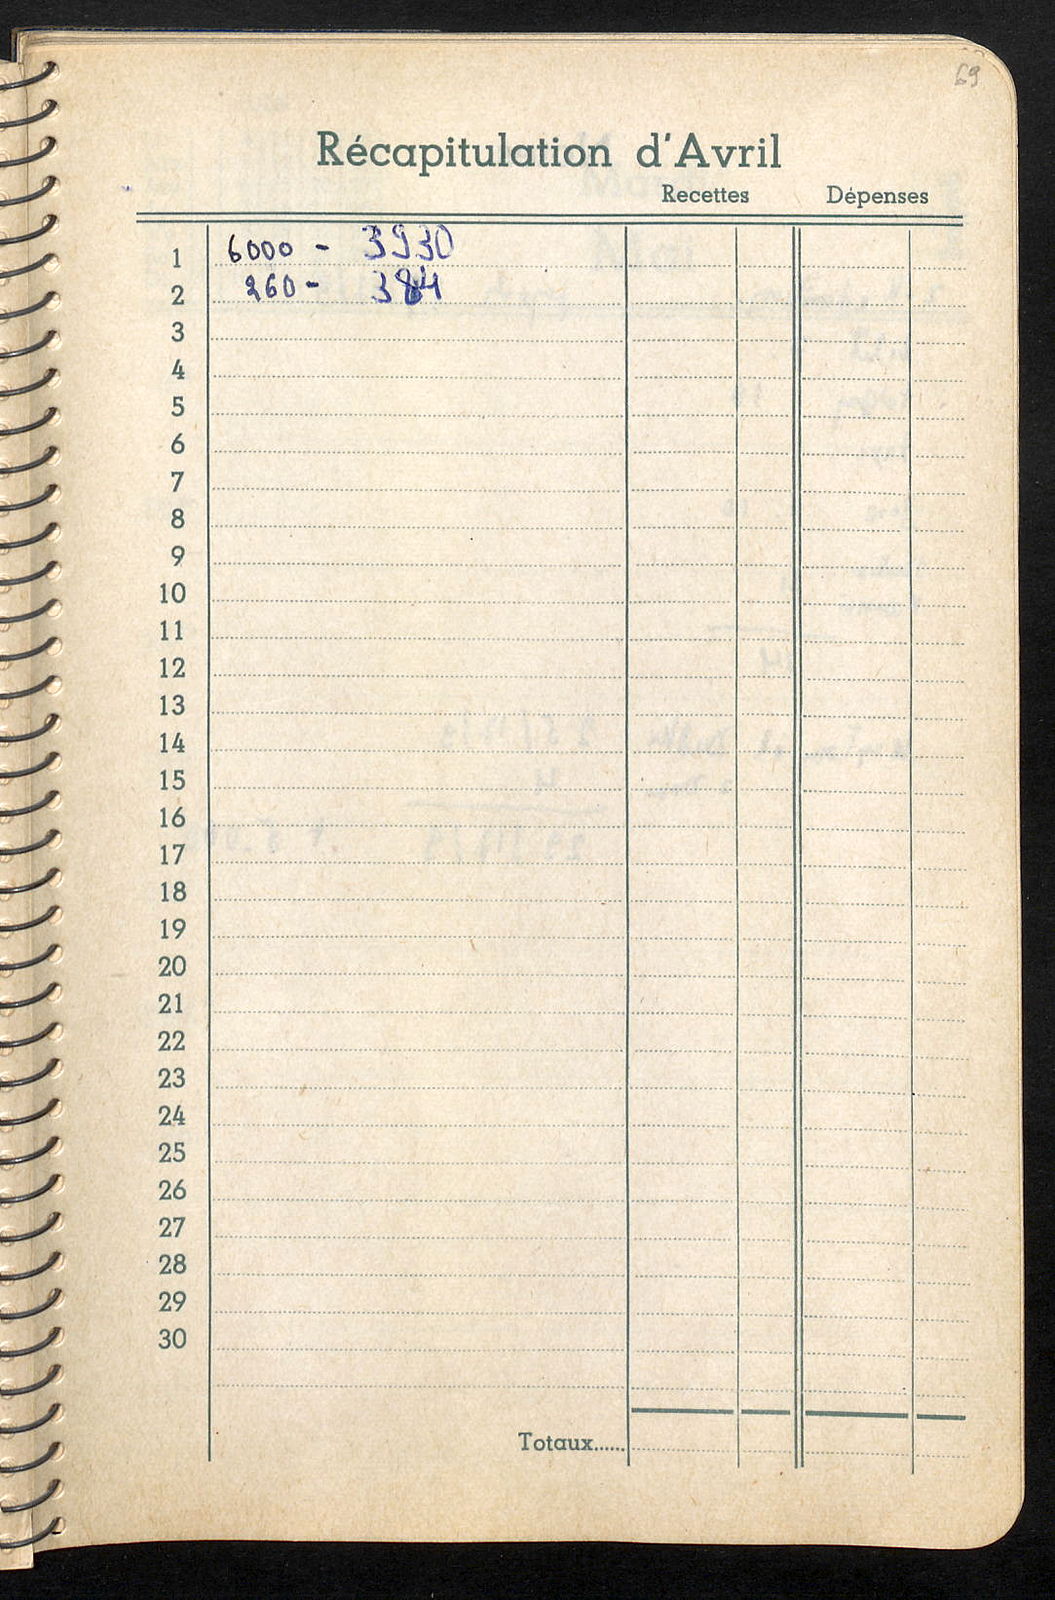 69
Récapitulation d'Avril
Recettes Dépenses
1 6000 - 3930
2 260 - 384
3
4
5
6
7
8
9
10
11
12
13
14
15
16
17
18
19
20
21
22
23
24
25
26
27
28
29
30
Totaux......